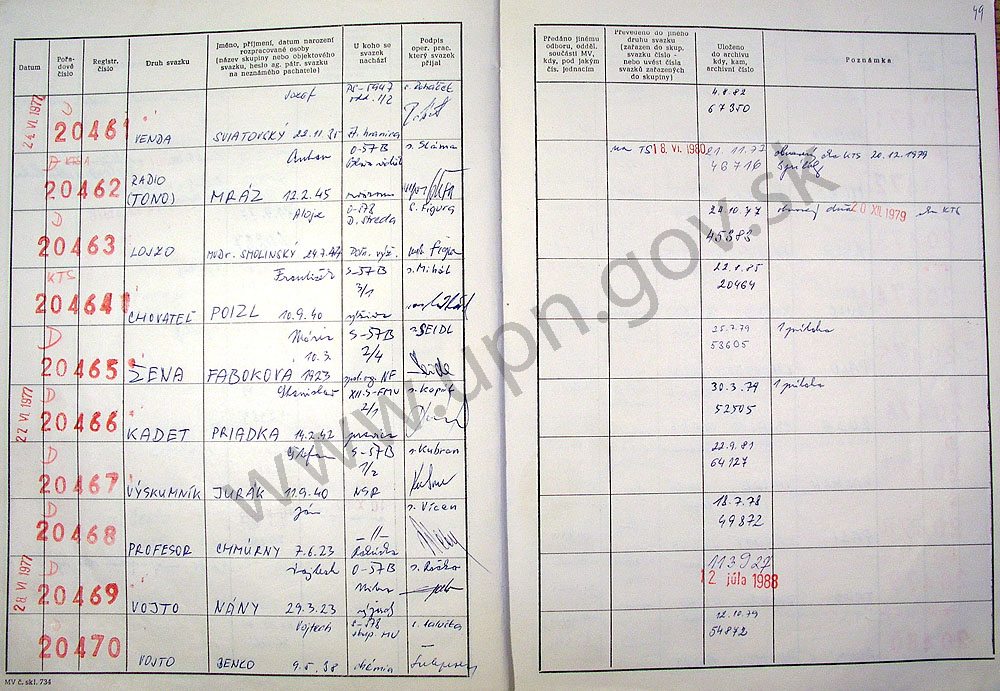 49
Datum
Pořa-
dové
číslo
Registr.
číslo
Druh svazku
Jméno, příjmení, datum narození
rozpracované osoby
(název skupiny nebo objektového
svazku, heslo ag. pátr. svazku
na neznámého pachatele)
U koho se
svazek
nachází
Podpis
oper. prac.
který svazek
přijal
Předáno jinému
odboru, odděl.
součásti MV,
kdy, pod jakým
čís. jednacím
Převedeno do jiného
druhu svazku
(zařazen do skup.
svazku číslo -
nebo uvést čísla
svazků zařazených
do skupiny)
Uloženo
do archivu
kdy, kam,
archivní číslo
Poznámka
24 VI. 1977
D
20461
VENDA
Jozef
SVIATOVSKÝ 22.11.35
4.8.82
67350
D KTS
20462
RADIO
(TONO)
Anton
MRÁZ 12.2.45
O-57B
na TS 18. VI. 1980
21.11.79
46716
KTS 20.12.1979
D
20463
LOJZO
Alojz
MUDr. SMOLINSKÝ 24.7.47
O-57B
D. Streda
s. Figura
20.10.77
45383
20 XII. 1979
KTS
KTS
20464
CHOVATEĽ
František
POIZL 10.9.40
S-57B
3/1
s. Mihál
22.1.85
20464
D
20465
ŽENA
Mária
10.3.
FABOKOVA 1923
S-57B
2/4
s. SEIDL
25.7.79
53605
1 príloha
22 VI. 1977
D
20466
KADET
Stanislav
PRIADKA 14.2.42
XII.S-FMV
2/1
30.3.79
52505
1 príloha
D
20467
VÝSKUMNÍK
Štefan
JURÁK 11.9.40
S-57B
1/2
NSR
s. Kubran
22.9.81
64127
D
20468
PROFESOR
Ján
CHMÚRNY 7.6.23
-//-
s. Vican
18.7.78
49872
28 VI. 1977
D
20469
VOJTO
Vojtech
NÁNY 29.3.23
O-57B
Nitra
113927
12. júla 1988
20470
VOJTO
Vojtech
BENKO 9.5.38
S-57B
skup. MV
chémia
12.10.79
54872
MV č. skl. 734
www.upn.gov.sk